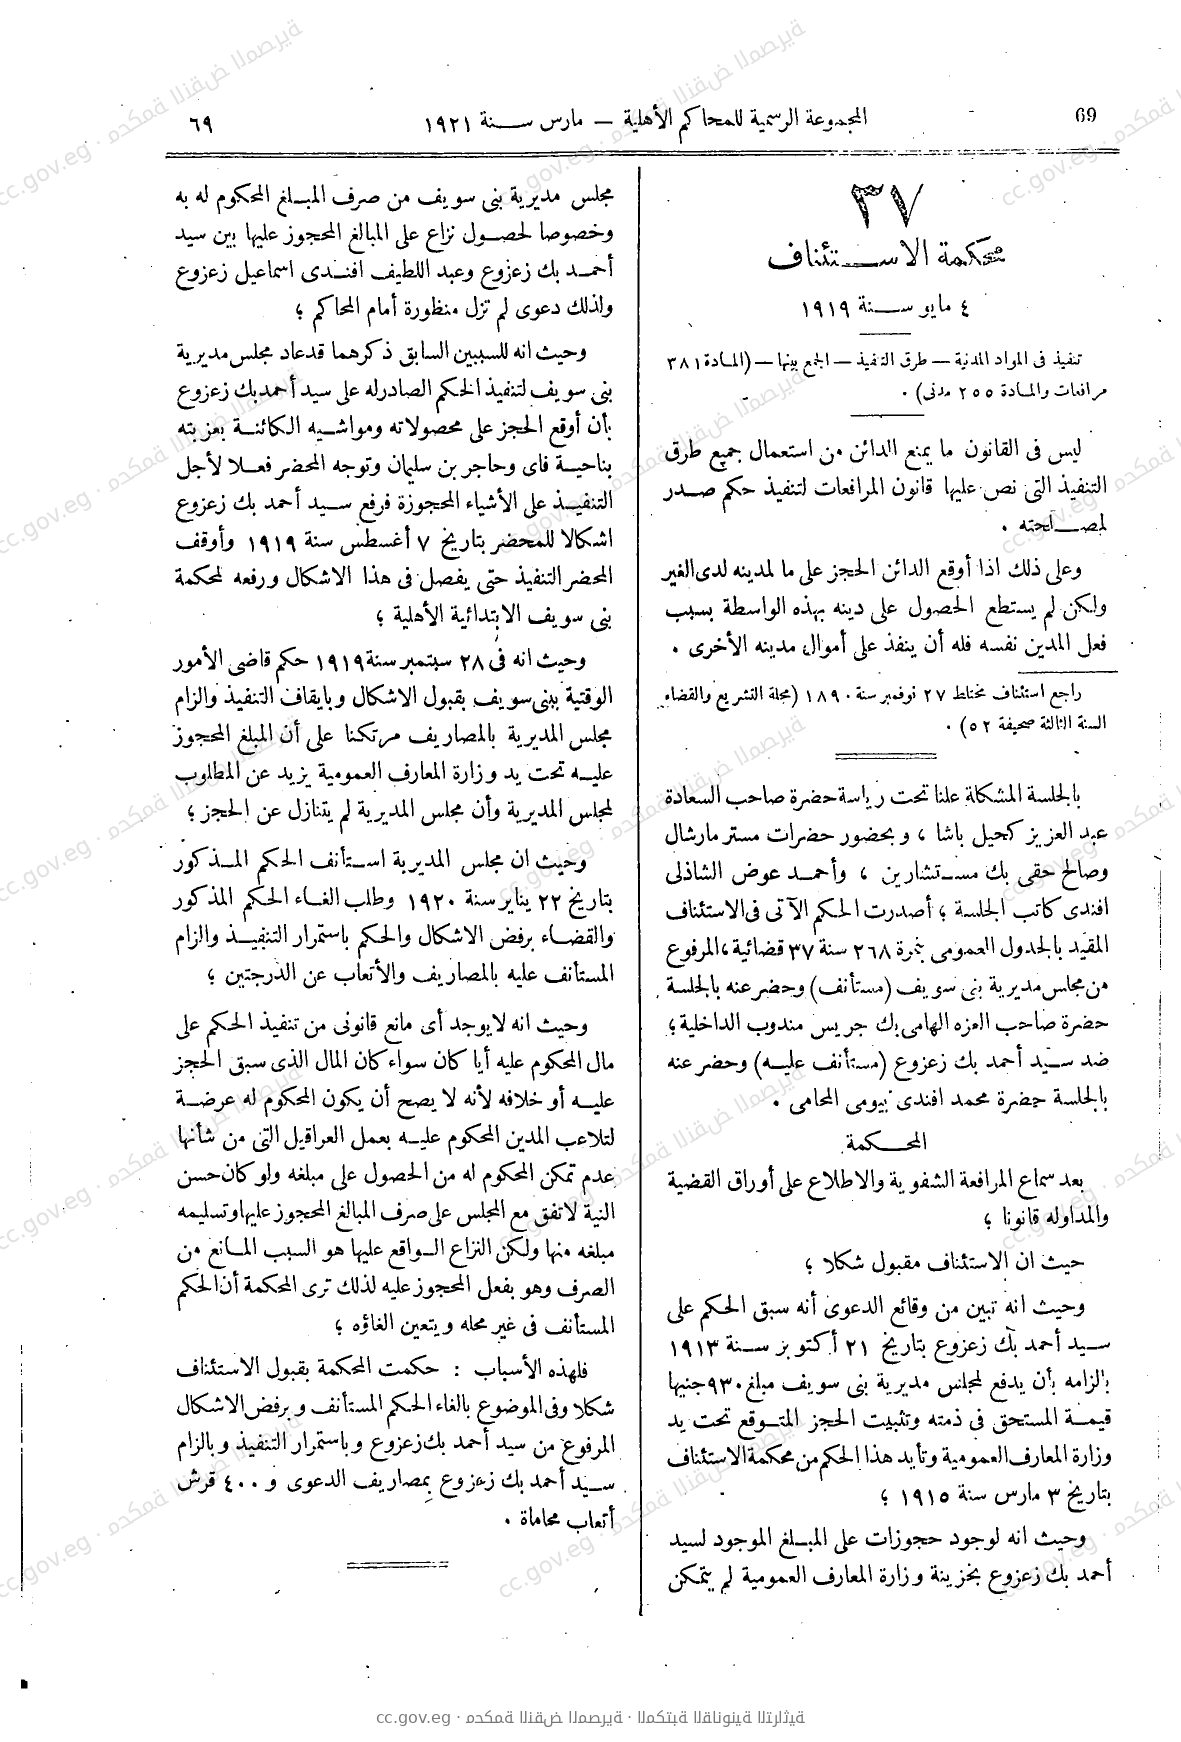 69
المجموعة الرسمية للمحاكم الأهلية — مارس سنة ١٩٢١
٦٩
٣٧
محكمة الاستئناف
٤ مايو سنة ١٩١٩
تنفيذ فى المواد المدنية — طرق التنفيذ — الجمع بينها — (المادة ٣٨١
مرافعات والمادة ٢٥٥ مدنى) .
ليس فى القانون ما يمنع الدائن من استعمال جميع طرق
التنفيذ التى نص عليها قانون المرافعات لتنفيذ حكم صدر
لمصلحته .
وعلى ذلك اذا أوقع الدائن الحجز على ما لمدينه لدى الغير
ولكن لم يستطع الحصول على دينه بهذه الواسطة بسبب
فعل المدين نفسه فله أن ينفذ على أموال مدينه الأخرى .
راجع استئناف مختلط ٢٧ نوفمبر سنة ١٨٩٠ (مجلة التشريع والقضاء
السنة الثالثة صحيفة ٥٢) .
بالجلسة المشكلة علنا تحت رياسة حضرة صاحب السعادة
عبد العزيز كحيل باشا ، وبحضور حضرات مستر مارشال
وصالح حقى بك مستشارين ، وأحمد عوض الشاذلى
افندى كاتب الجلسة ؛ أصدرت الحكم الآتى فى الاستئناف
المقيد بالجدول العمومى بنمرة ٢٦٨ سنة ٣٧ قضائية ، المرفوع
من مجلس مديرية بنى سويف (مستأنف) وحضر عنه بالجلسة
حضرة صاحب العزه الهامى بك جريس مندوب الداخلية ؛
ضد سيد أحمد بك زعزوع (مستأنف عليه) وحضر عنه
بالجلسة حضرة محمد افندى بيومى المحامى .
المحكمة
بعد سماع المرافعة الشفوية والاطلاع على أوراق القضية
والمداوله قانونا ؛
حيث ان الاستئناف مقبول شكلا ؛
وحيث انه تبين من وقائع الدعوى أنه سبق الحكم على
سيد أحمد بك زعزوع بتاريخ ٢١ أكتوبر سنة ١٩١٣
بالزامه بأن يدفع لمجلس مديرية بنى سويف مبلغ ٩٣٠ جنيها
قيمة المستحق فى ذمته وتثبيت الحجز المتوقع تحت يد
وزارة المعارف العمومية وتأيد هذا الحكم من محكمة الاستئناف
بتاريخ ٣ مارس سنة ١٩١٥ ؛
وحيث انه لوجود حجوزات على المبلغ الموجود لسيد
أحمد بك زعزوع بخزينة وزارة المعارف العمومية لم يتمكن
مجلس مديرية بنى سويف من صرف المبلغ المحكوم له به
وخصوصا لحصول نزاع على المبالغ المحجوز عليها بين سيد
أحمد بك زعزوع وعبد اللطيف افندى اسماعيل زعزوع
ولذلك دعوى لم تزل منظورة أمام المحاكم ؛
وحيث انه للسببين السابق ذكرهما قد عاد مجلس مديرية
بنى سويف لتنفيذ الحكم الصادر له على سيد أحمد بك زعزوع
بأن أوقع الحجز على محصولاته ومواشيه الكائنة بعزبته
بناحية فاى وحاجر بن سليمان وتوجه المحضر فعلا لأجل
التنفيذ على الأشياء المحجوزة فرفع سيد أحمد بك زعزوع
اشكالا للمحضر بتاريخ ٧ أغسطس سنة ١٩١٩ وأوقف
المحضر التنفيذ حتى يفصل فى هذا الاشكال ورفعه لمحكمة
بنى سويف الابتدائية الأهلية ؛
وحيث انه فى ٢٨ سبتمبر سنة ١٩١٩ حكم قاضى الأمور
الوقتية ببنى سويف بقبول الاشكال وبايقاف التنفيذ والزام
مجلس المديرية بالمصاريف مرتكنا على أن المبلغ المحجوز
عليه تحت يد وزارة المعارف العمومية يزيد عن المطلوب
لمجلس المديرية وأن مجلس المديرية لم يتنازل عن الحجز ؛
وحيث ان مجلس المديرية استأنف الحكم المذكور
بتاريخ ٢٢ يناير سنة ١٩٢٠ وطلب الغاء الحكم المذكور
والقضاء برفض الاشكال والحكم باستمرار التنفيذ والزام
المستأنف عليه بالمصاريف والأتعاب عن الدرجتين ؛
وحيث انه لا يوجد أى مانع قانونى من تنفيذ الحكم على
مال المحكوم عليه أيا كان سواء كان المال الذى سبق الحجز
عليه أو خلافه لأنه لا يصح أن يكون المحكوم له عرضة
لتلاعب المدين المحكوم عليه بعمل العراقيل التى من شأنها
عدم تمكن المحكوم له من الحصول على مبلغه ولو كان حسن
النية لاتفق مع المجلس على صرف المبالغ المحجوز عليها وتسليمه
مبلغه منها ولكن النزاع الواقع عليها هو السبب المانع من
الصرف وهو بفعل المحجوز عليه لذلك ترى المحكمة أن الحكم
المستأنف فى غير محله ويتعين الغاؤه ؛
فلهذه الأسباب : حكمت المحكمة بقبول الاستئناف
شكلا وفى الموضوع بالغاء الحكم المستأنف وبرفض الاشكال
المرفوع من سيد أحمد بك زعزوع وباستمرار التنفيذ وبالزام
سيد أحمد بك زعزوع بمصاريف الدعوى و ٤٠٠ قرش
أتعاب محاماة .
cc.gov.eg · محكمة النقض المصرية · المكتبة القانونية التراثية